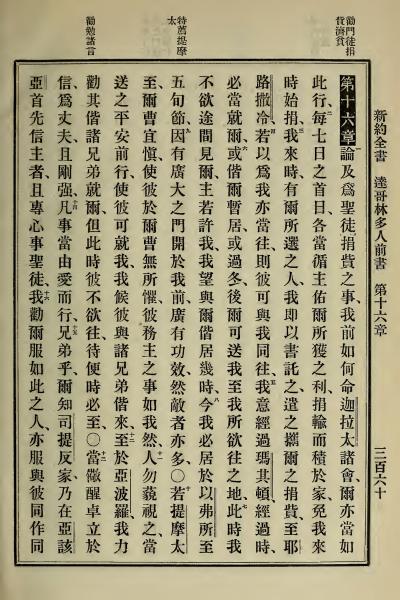 新約全書 達哥林多人前書 第十六章 三百六十
勸門徒捐
貲濟貧
特薦提摩
太
勸勉諸言
第十六章一論及爲聖徒捐貲之事、我前如何命迦拉太諸會、爾亦當如
此行、二每七日之首日、各當循主佑爾所獲之利、捐輸而積於家、免我來
時始捐、三我來時、有爾所選之人、我即以書託之、遣之攜爾之捐貲、至耶
路撒冷、四若以爲我亦當往、則彼可與我同往、五我意經過瑪其頓、經過時、
必當就爾、六或偕爾暫居、或過冬、後爾可送我至我所欲往之地、七此時我
不欲途間見爾、主若許我、我望與爾偕居幾時、八今我必居於以弗所、至
五旬節、九因有廣大之門開於我前、廣有功效、然敵者亦多、〇十若提摩太
至、爾曹宜慎、使彼於爾曹無所懼、彼務主之事如我然、十一人勿藐視之、當
送之平安前行、使彼可就我、我候彼與諸兄弟偕來、十二至於亞波羅、我力
勸其偕諸兄弟就爾、但此時彼不欲往、待便時必至、〇十三當儆醒、卓立於
信、爲丈夫、且剛强、十四凡事當由愛而行、十五兄弟乎、爾知司提反家、乃在亞該
亞首先信主者、且專心事聖徒、十六我勸爾服如此之人、亦服與彼同作同